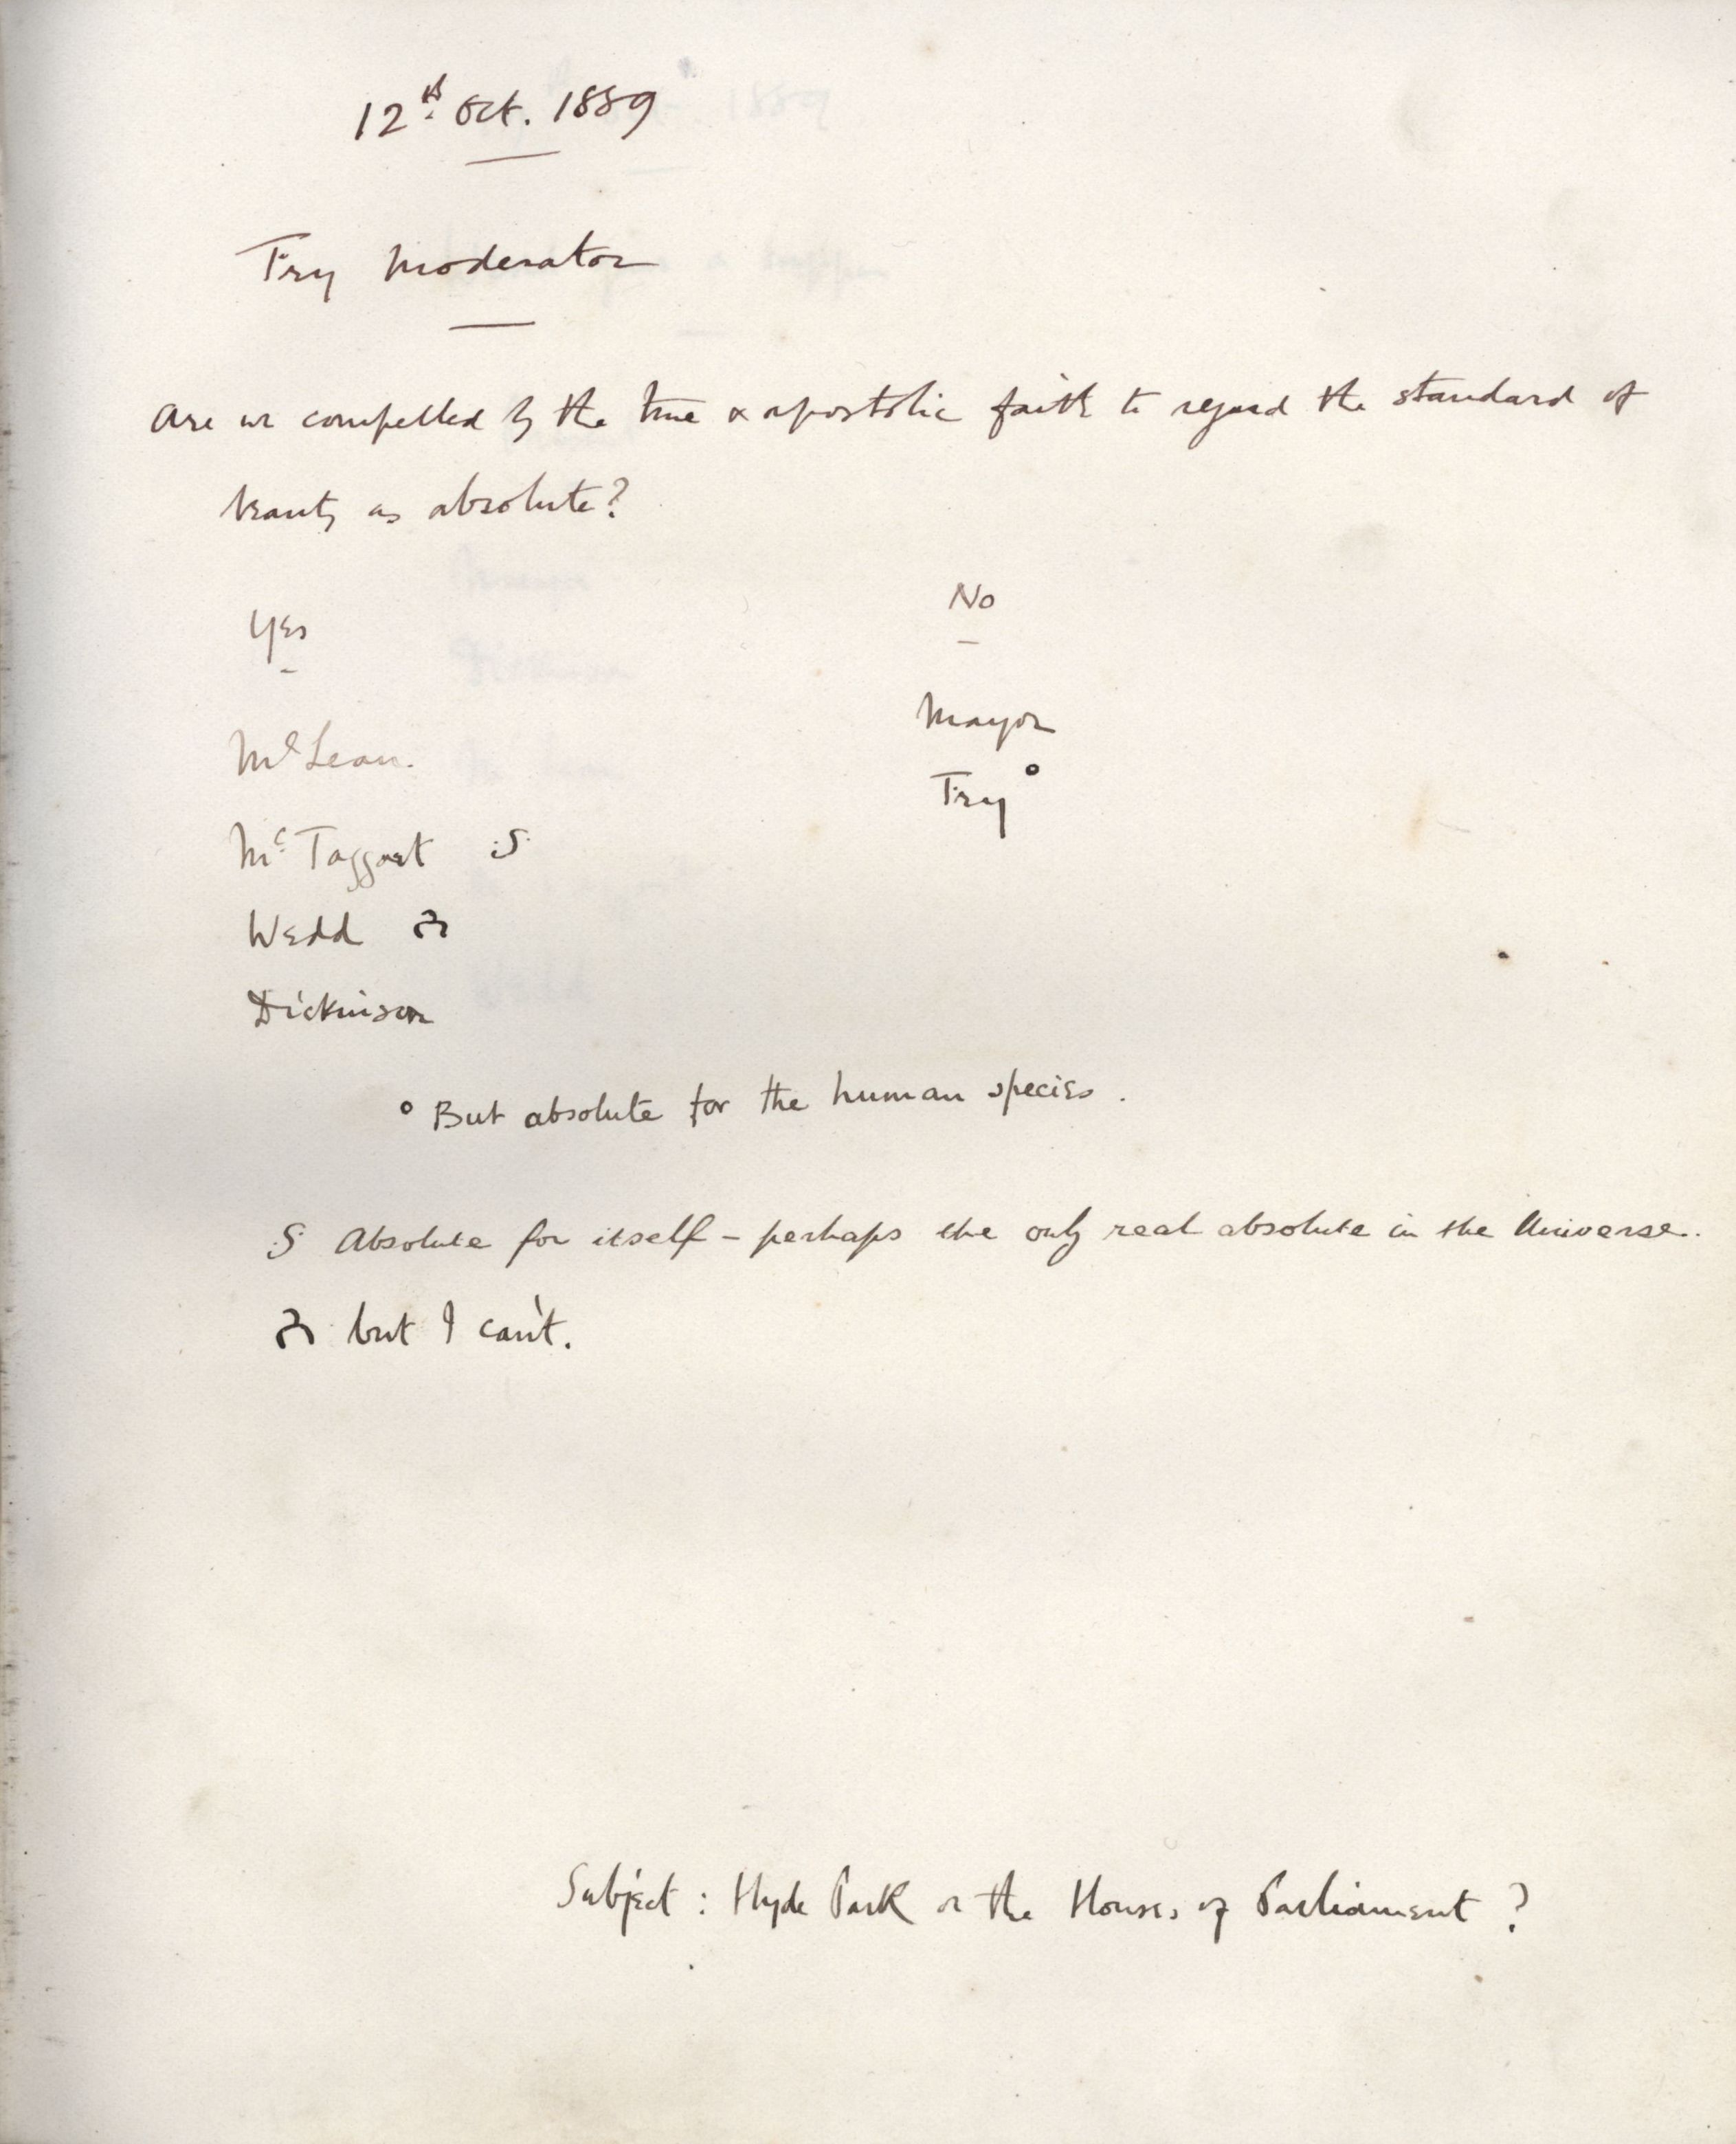 12th. Oct. 1889
Fry Moderator
Are we compelled by the true & apostolic faith to regard the standard of
beauty as absolute?
Yes
No
McLean.
Mayor
Fry °
McTaggart S
Wedd
Dickinson
° But absolute for the human species.
S Absolute for itself – perhaps the only real absolute in the Universe.
but I can't.
Subject: Hyde Park or the Houses of Parliament?